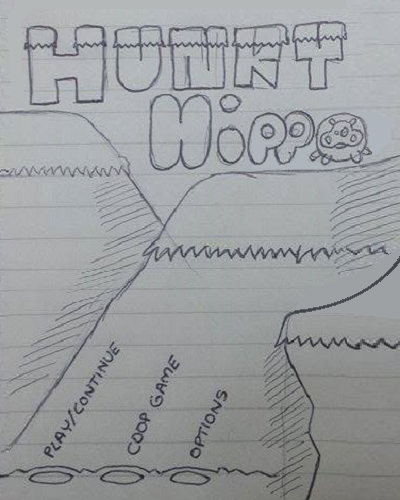 HUNRT
Hippo
PLAY/CONTINUE
COOP GAME
OPTIONS